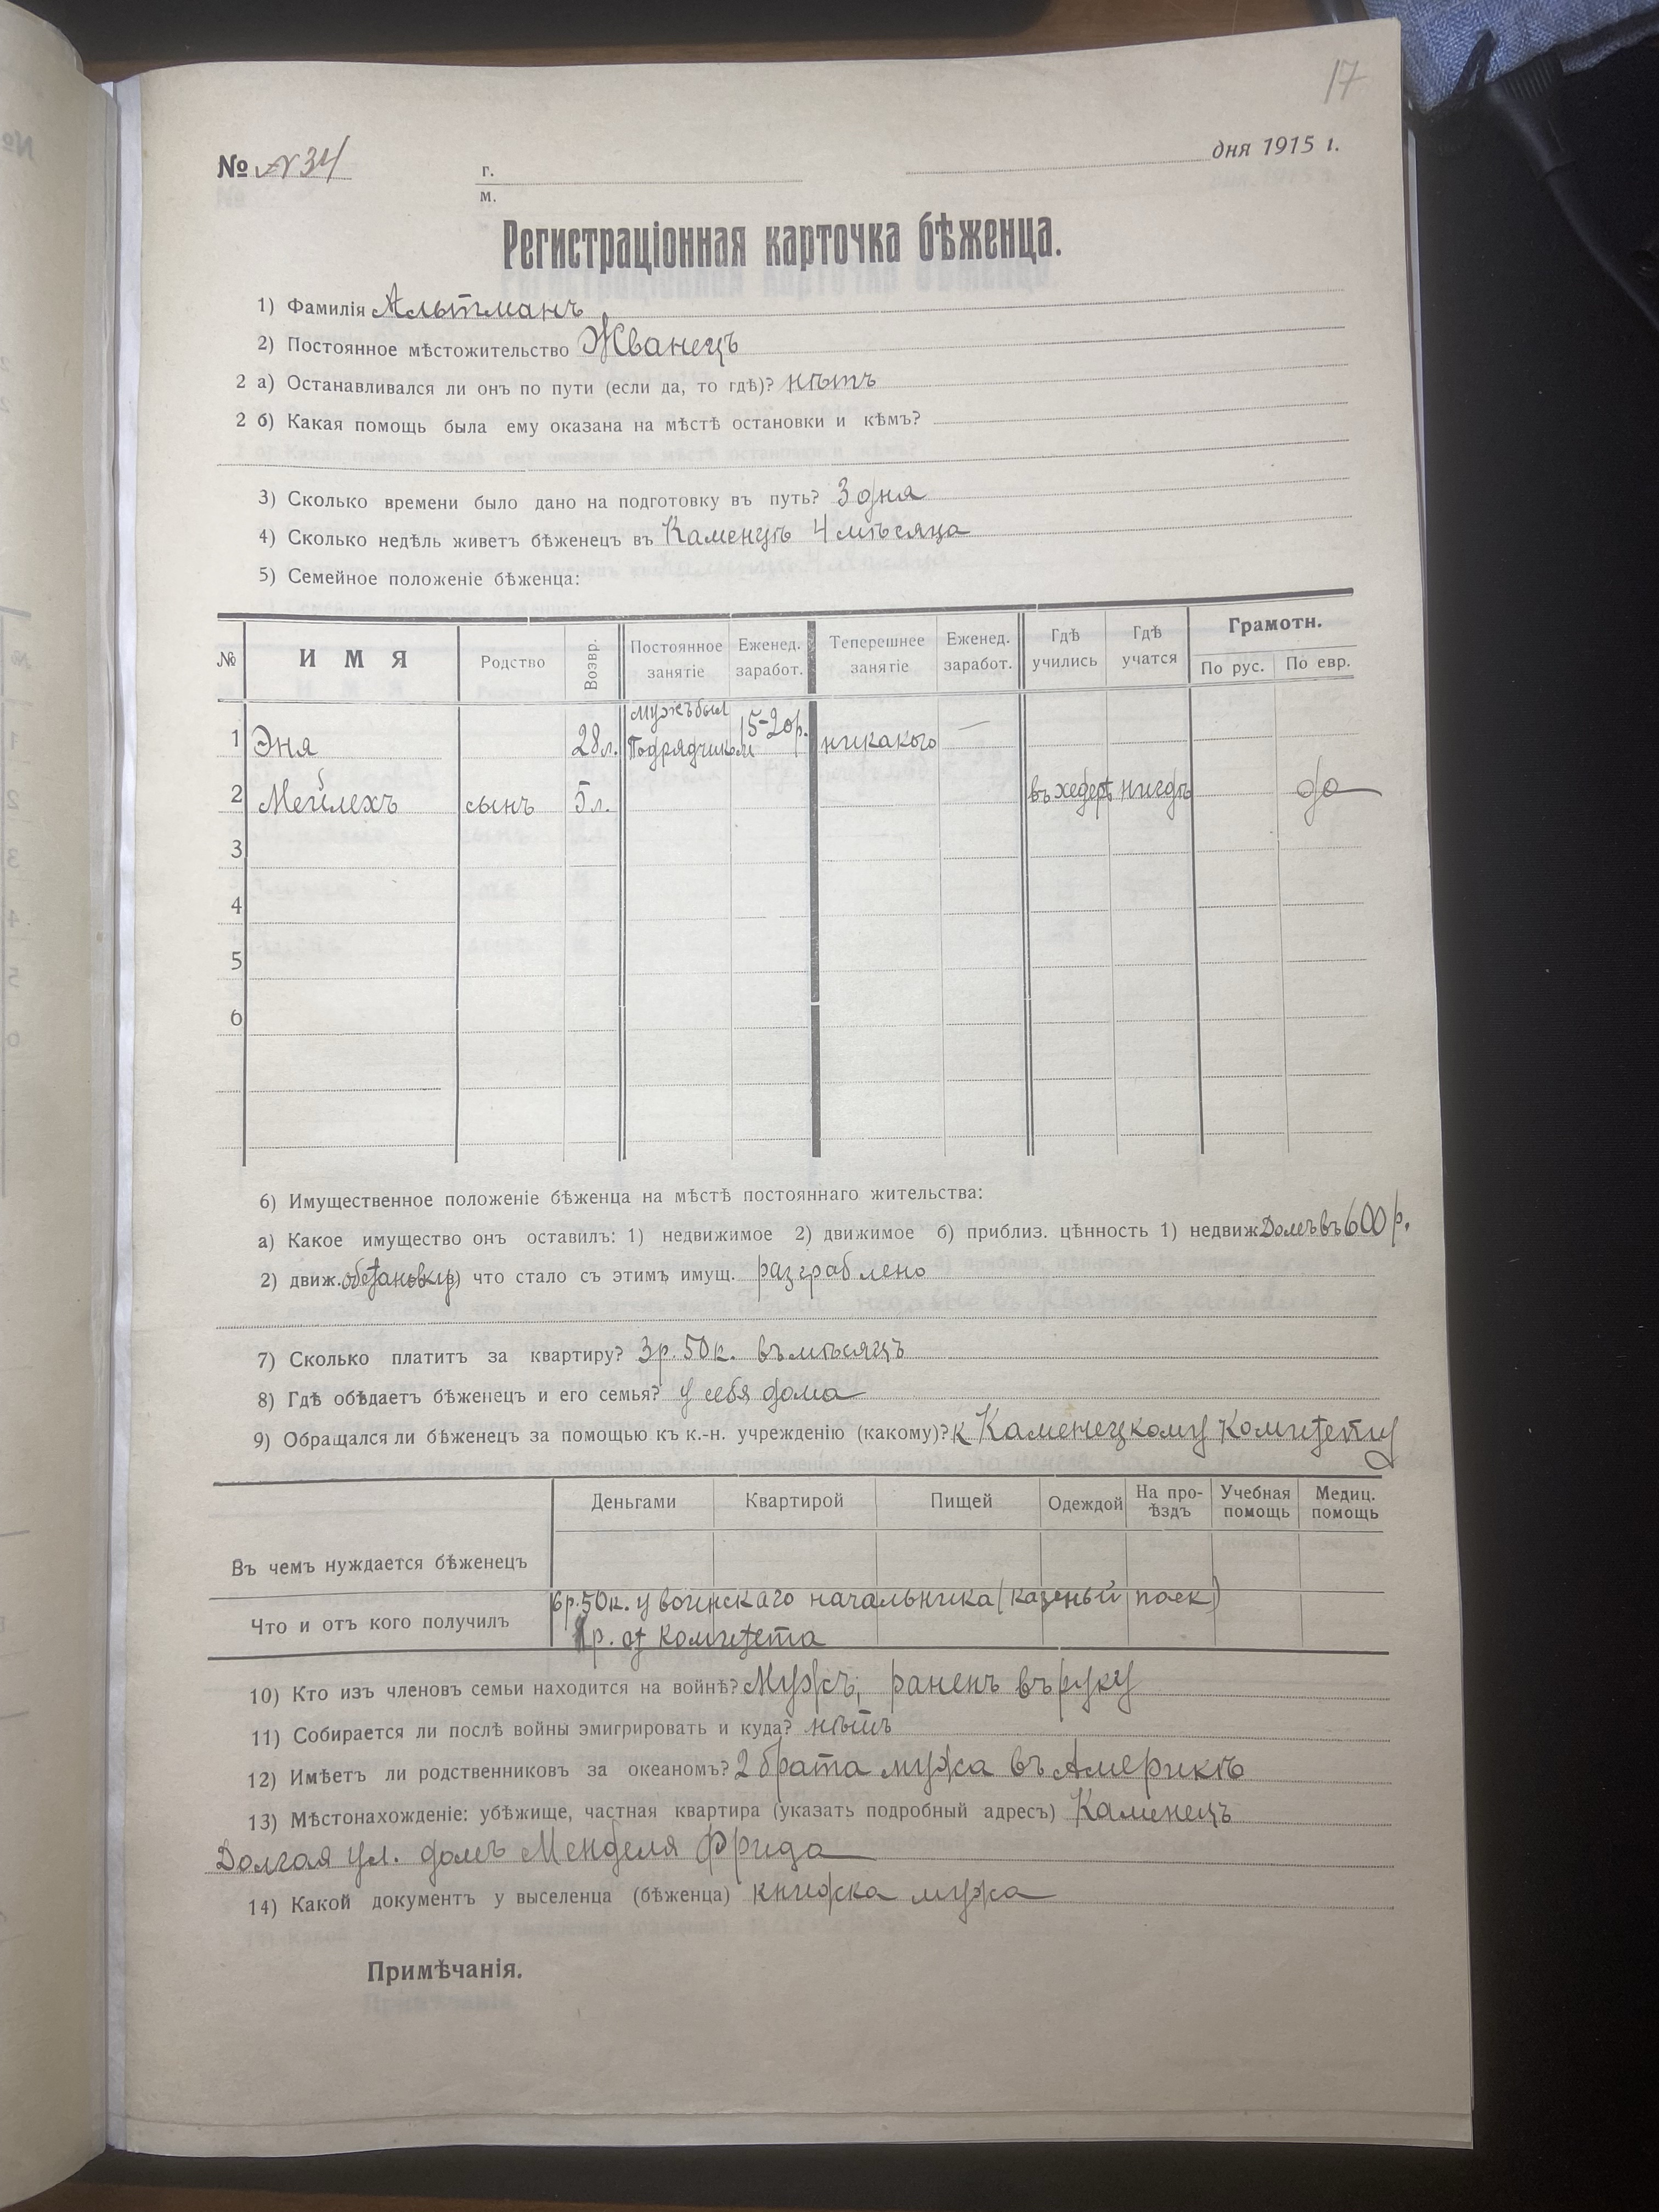 17
№ N 34 г. дня 1915 г.
м.
Регистраціонная карточка бѣженца.
1) Фамилія Альтманъ
2) Постоянное мѣстожительство Жванецъ
2 а) Останавливался ли онъ по пути (если да, то гдѣ)? нѣтъ
2 б) Какая помощь была ему оказана на мѣстѣ остановки и кѣмъ?
3) Сколько времени было дано на подготовку въ путь? 3 дня
4) Сколько недѣль живетъ бѣженецъ въ Каменцѣ 4 мѣсяца
5) Семейное положеніе бѣженца:
№ ИМЯ Родство Возвр. Постоянное занятіе Еженед. заработ. Теперешнее занятіе Еженед. заработ. Гдѣ учились Гдѣ учатся Грамотн. По рус. По евр.
1 Эня 28 л. мужъ был подрядчиком 15-20 р. никакого —
2 Мейлехъ сынъ 5 л. въ хедерѣ нигдѣ да
3
4
5
6
6) Имущественное положеніе бѣженца на мѣстѣ постояннаго жительства:
а) Какое имущество онъ оставилъ: 1) недвижимое 2) движимое б) приблиз. цѣнность 1) недвиж Домъ въ 600 р.
2) движ. обстановку в) что стало съ этимъ имущ. разграблено
7) Сколько платитъ за квартиру? 3 р. 50 к. въ мѣсяцъ
8) Гдѣ обѣдаетъ бѣженецъ и его семья? у себя дома
9) Обращался ли бѣженецъ за помощью къ к.-н. учрежденію (какому)? к Каменецкому Комитету
Деньгами Квартирой Пищей Одеждой На проѣздъ Учебная помощь Медиц. помощь
Въ чемъ нуждается бѣженецъ
Что и отъ кого получилъ 6 р. 50 к. у воинскаго начальника (казеный паек)
р. от комитета
10) Кто изъ членовъ семьи находится на войнѣ? Мужъ, раненъ въ руку
11) Собирается ли послѣ войны эмигрировать и куда? нѣтъ
12) Имѣетъ ли родственниковъ за океаномъ? 2 брата мужа въ Америкѣ
13) Мѣстонахожденіе: убѣжище, частная квартира (указать подробный адресъ) Каменецъ
Долгая ул. домъ Менделя Фрида
14) Какой документъ у выселенца (бѣженца) книжка мужа
Примѣчанія.